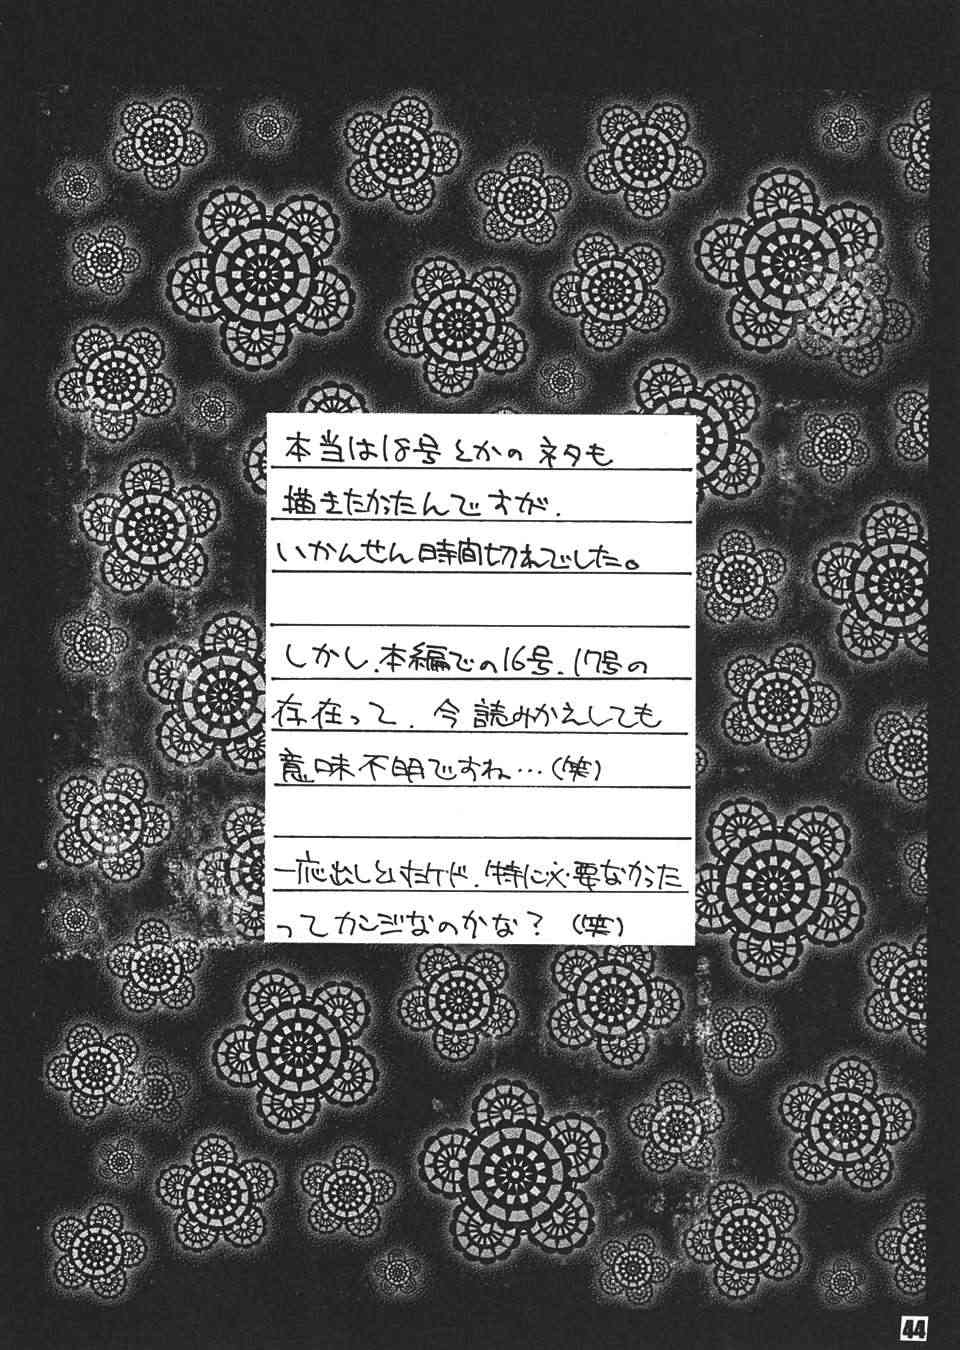 本当は18号とかのネタも
描きたかったんですが、
いかんせん時間切れでした。
しかし、本編での16号、17号の
存在って、今読みかえしても
意味不明ですね…(笑)
一応出しといたケド、特に必要なかった
ってカンジなのかな？(笑)
44